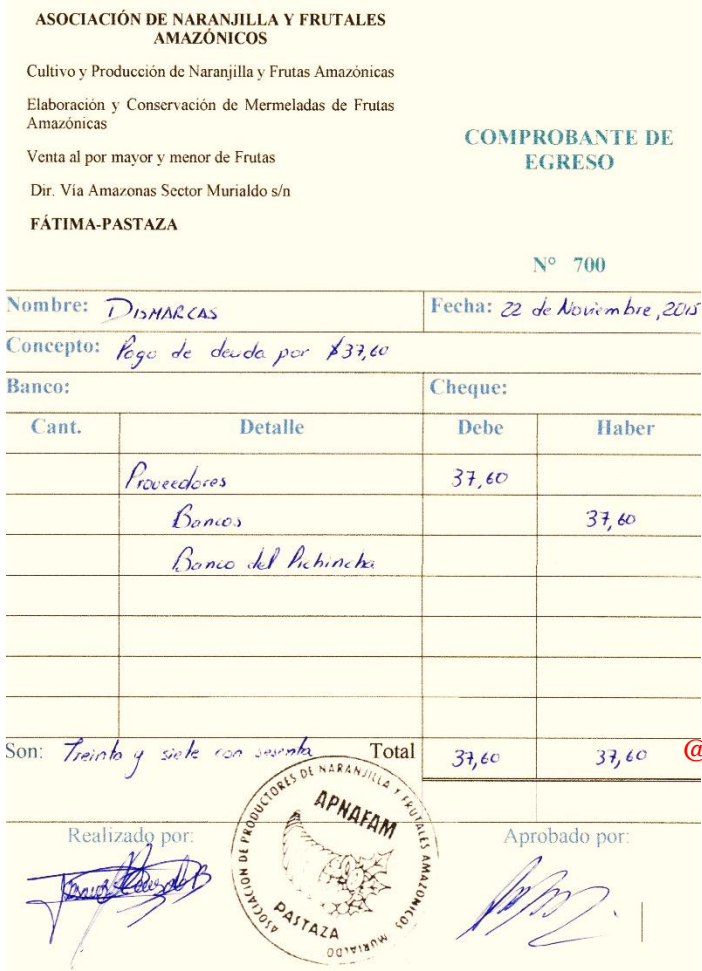 ASOCIACIÓN DE NARANJILLA Y FRUTALES
AMAZÓNICOS
Cultivo y Producción de Naranjilla y Frutas Amazónicas
Elaboración y Conservación de Mermeladas de Frutas
Amazónicas
Venta al por mayor y menor de Frutas
Dir. Vía Amazonas Sector Murialdo s/n
FÁTIMA-PASTAZA
COMPROBANTE DE
EGRESO
N° 700
Nombre: DISMARCAS Fecha: 22 de Noviembre, 2015
Concepto: Pago de deuda por $37,60
Banco: Cheque:
Cant. Detalle Debe Haber
Proveedores 37,60
Bancos 37,60
Banco del Pichincha
Son: Treinta y siete con sesenta Total 37,60 37,60 @
Realizado por: Aprobado por:
ASOCIACION DE PRODUCTORES DE NARANJILLA Y FRUTALES AMAZONICOS MURIALDO
APNAFAM
PASTAZA